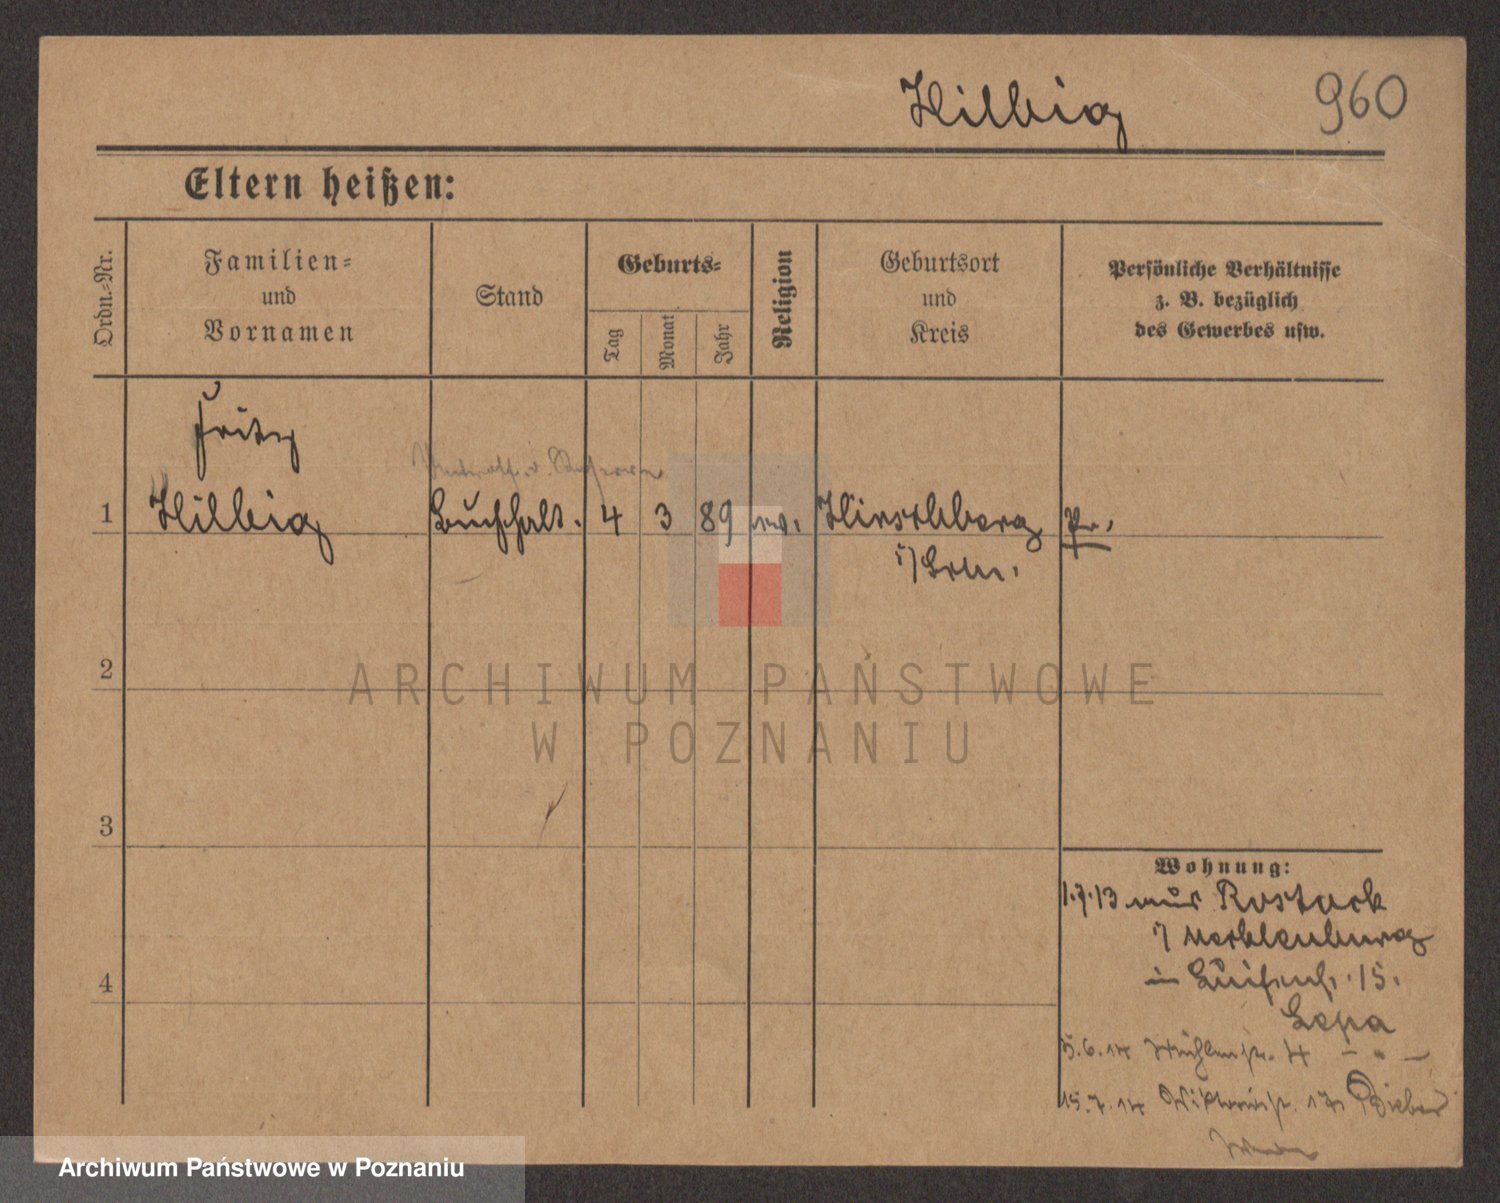 Hilbig
960
Eltern heißen:
Ordn.-Nr.
Familien-
und
Vornamen
Stand
Geburts-
Tag
Monat
Jahr
Religion
Geburtsort
und
Kreis
Persönliche Verhältnisse
z. B. bezüglich
des Gewerbes usw.
Fritz
1 Hilbig Buchhalt. 4 3 89 ev. Hirschberg Pr.
2
3
4
Wohnung:
1.7.13 aus Rostock
i/ Mecklenburg
in Luisenst. 15.
5.6.14 Mühlenstr. 4 - " -
15.7.14 Viktoriastr. Bieber
ARCHIWUM PAŃSTWOWE
W POZNANIU
Archiwum Państwowe w Poznaniu